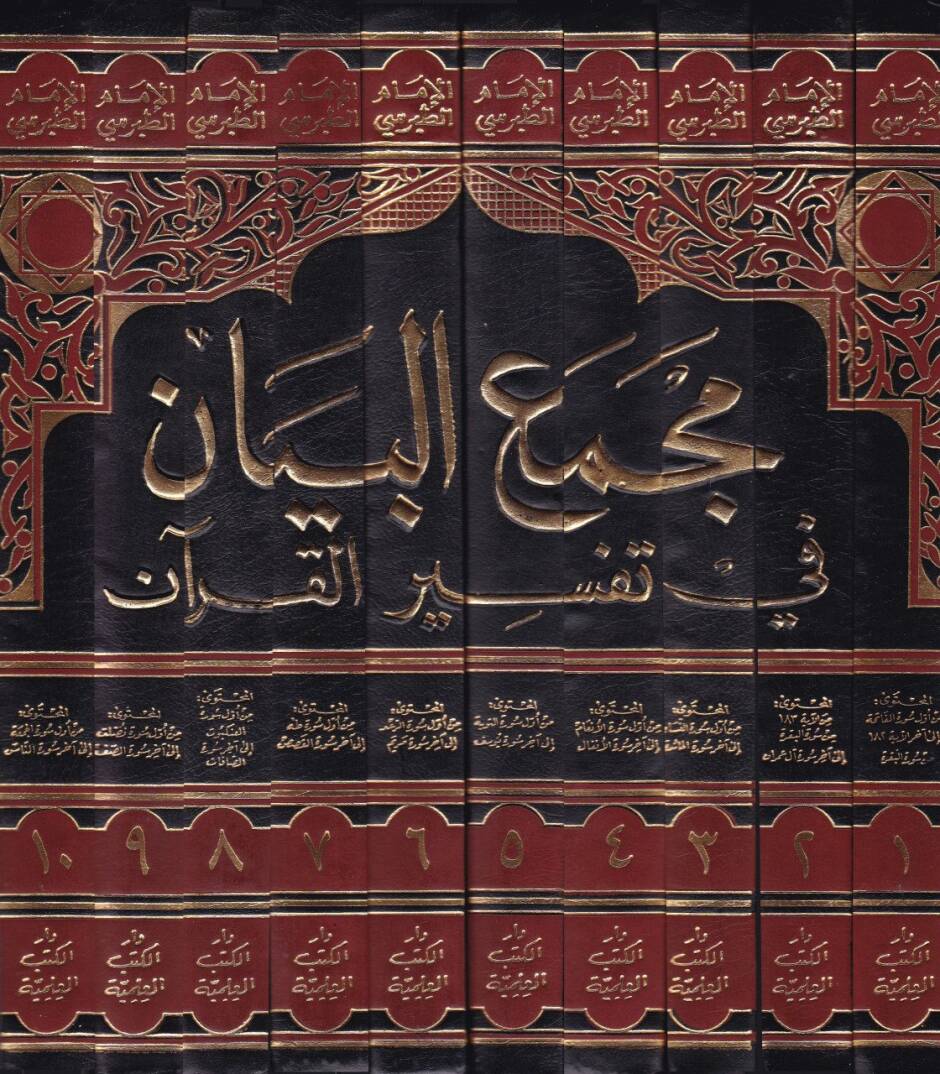 الإمام
الطبرسي
الإمام
الطبرسي
الإمام
الطبرسي
الإمام
الطبرسي
الإمام
الطبرسي
الإمام
الطبرسي
الإمام
الطبرسي
الإمام
الطبرسي
الإمام
الطبرسي
الإمام
الطبرسي
مجمع البيان
في تفسير القرآن
المحتوى:
من أول سورة الفاتحة
إلى آخر الآية ١٨٢
من سورة البقرة
المحتوى:
من الآية ١٨٣
من سورة البقرة
إلى آخر سورة آل عمران
المحتوى:
من أول سورة النساء
إلى آخر سورة المائدة
المحتوى:
من أول سورة الأنعام
إلى آخر سورة الأنفال
المحتوى:
من أول سورة التوبة
إلى آخر سورة يوسف
المحتوى:
من أول سورة الرعد
إلى آخر سورة مريم
المحتوى:
من أول سورة طه
إلى آخر سورة القصص
المحتوى:
من أول سورة
العنكبوت
إلى آخر سورة
الصافات
المحتوى:
من أول سورة فصلت
إلى آخر سورة الصف
المحتوى:
من أول سورة الجمعة
إلى آخر سورة الناس
١
٢
٣
٤
٥
٦
٧
٨
٩
١٠
دار
الكتب
العلمية
دار
الكتب
العلمية
دار
الكتب
العلمية
دار
الكتب
العلمية
دار
الكتب
العلمية
دار
الكتب
العلمية
دار
الكتب
العلمية
دار
الكتب
العلمية
دار
الكتب
العلمية
دار
الكتب
العلمية